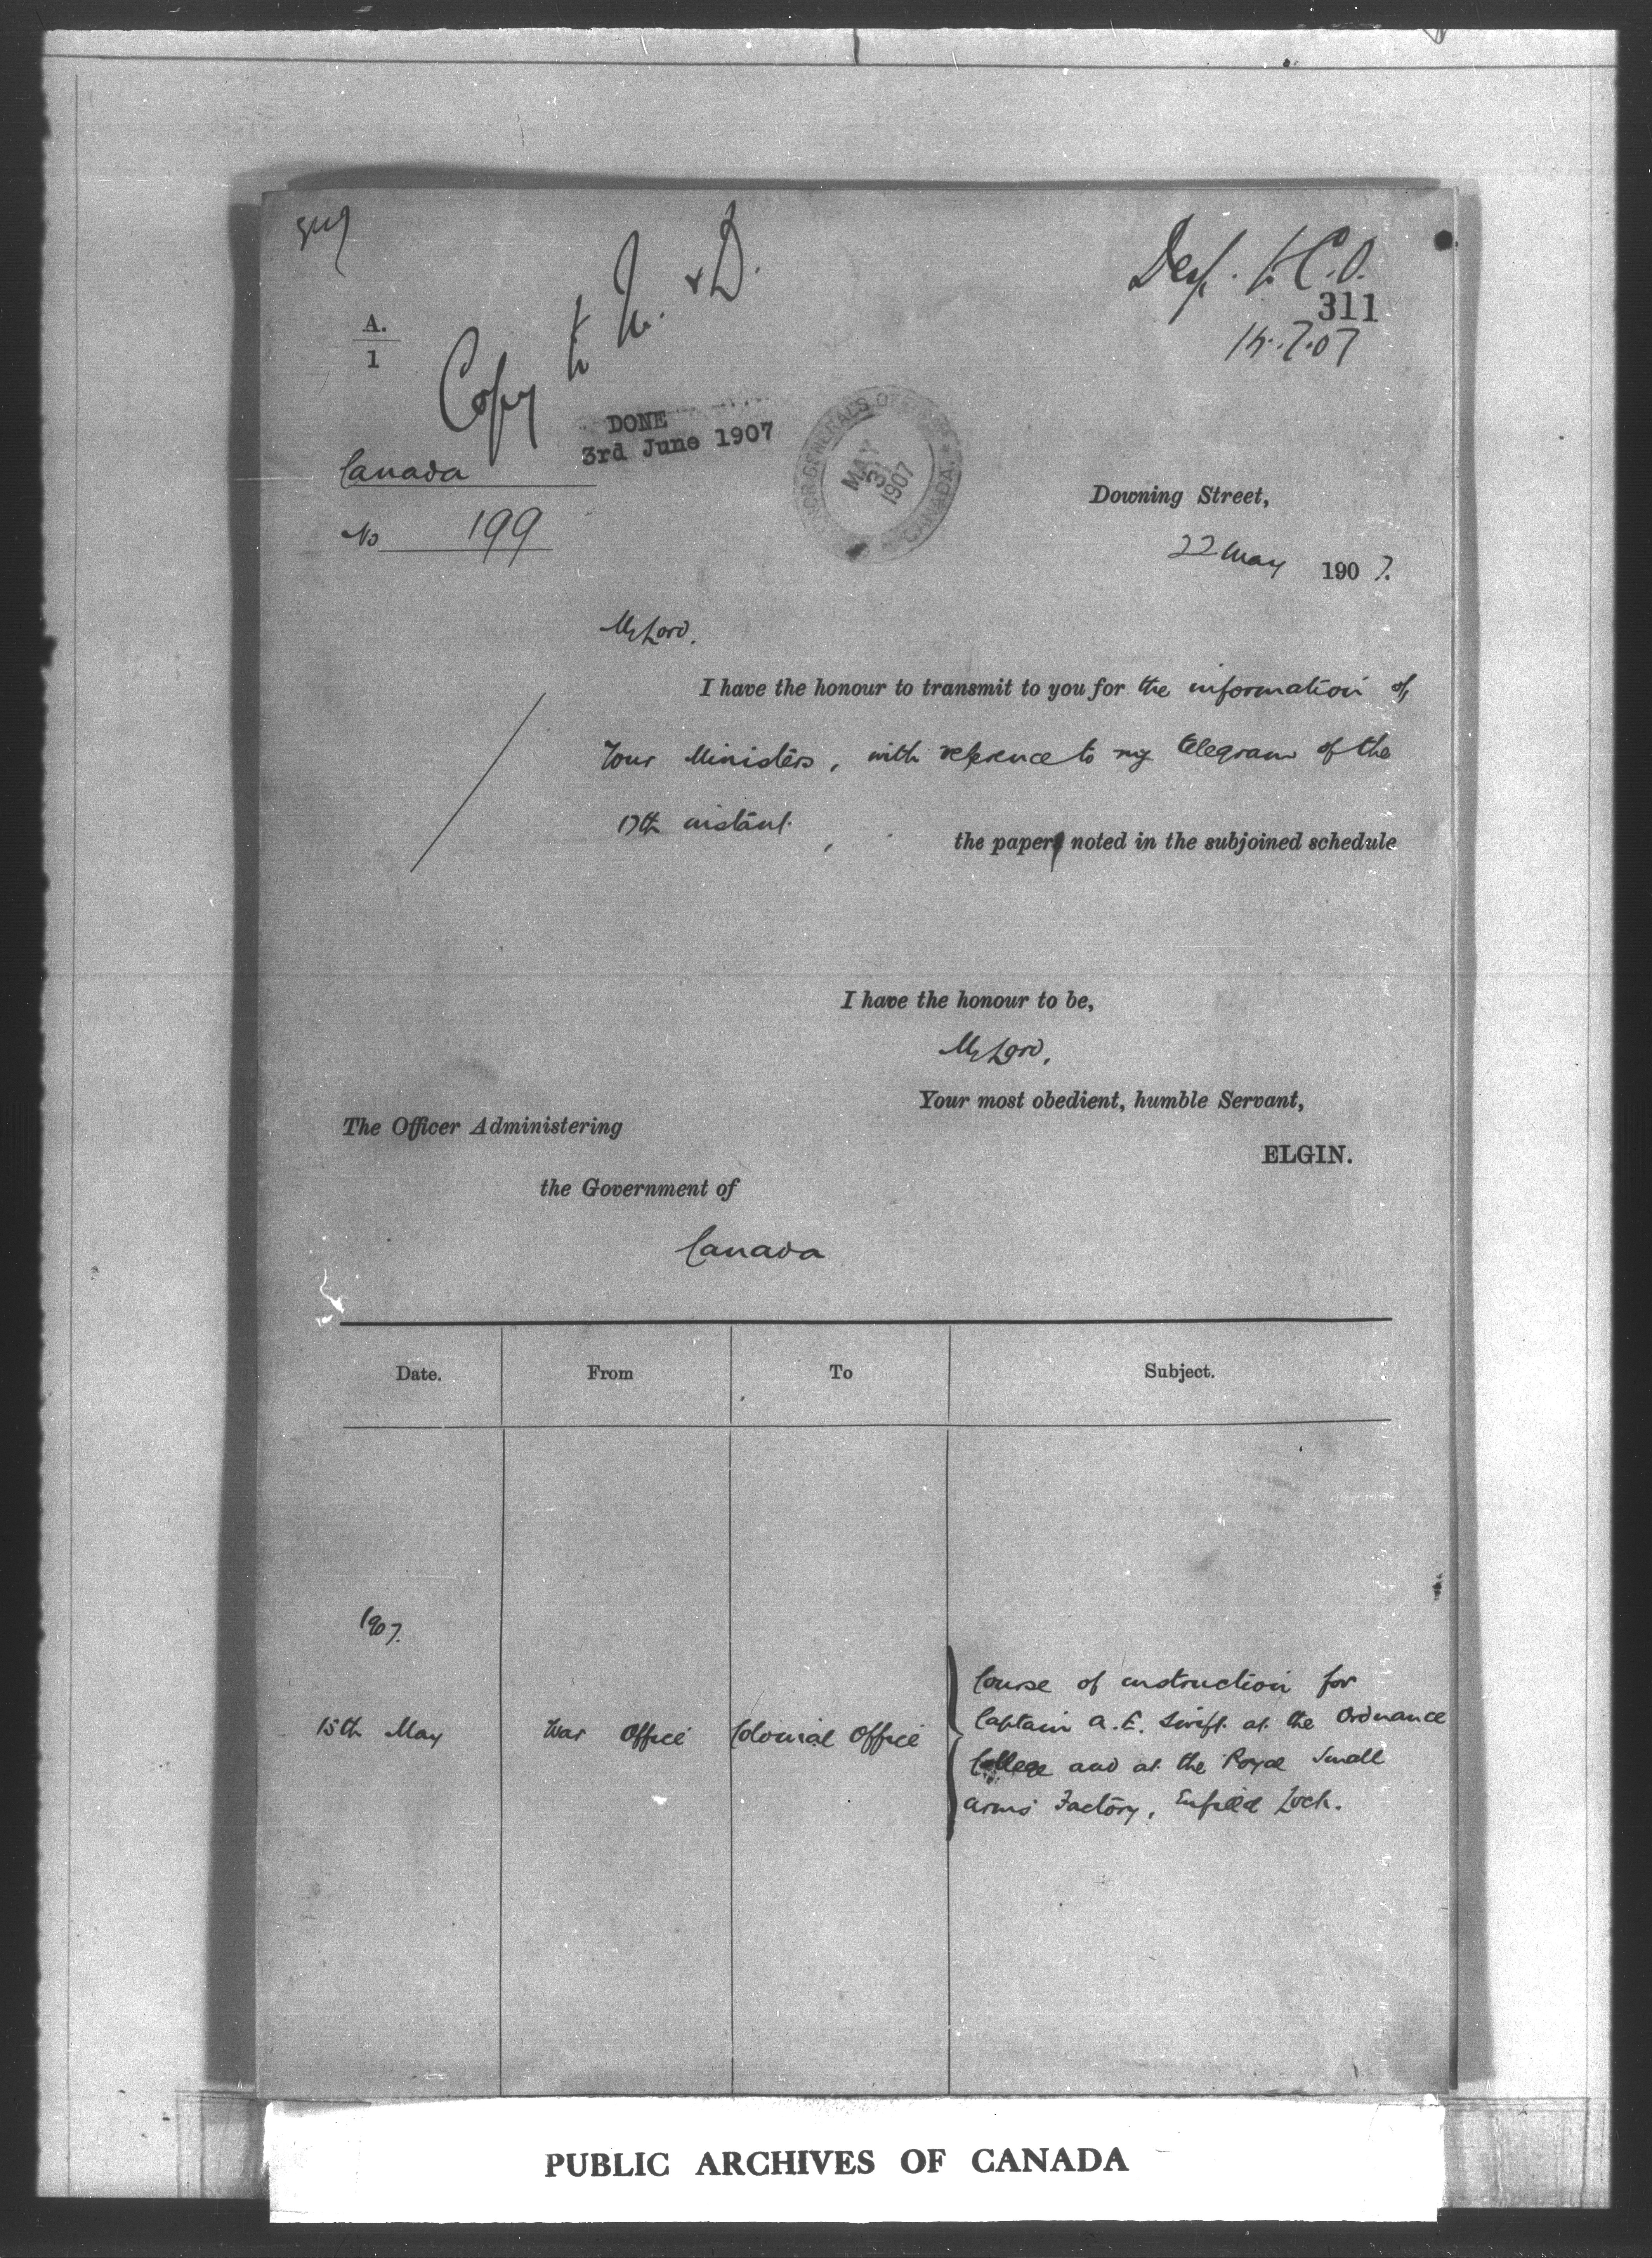 Copy to M. & D.
Desp. to C.O.
311
A.
1
DONE
3rd June 1907
GOVERNOR GENERAL'S OFFICE
MAY
31
1907
CANADA
Canada
No 199
Downing Street,
22 May 1907.
My Lord,
I have the honour to transmit to you for the information of
Your Ministers, with reference to my telegram of the
17th instant, the paper noted in the subjoined schedule
I have the honour to be,
My Lord,
Your most obedient, humble Servant,
ELGIN.
The Officer Administering
the Government of
Canada
Date. From To Subject.
1907.
15th May War Office Colonial Office
Course of instruction for
Captain A. E. Swift at the Ordnance
College and at the Royal Small
Arms Factory, Enfield Lock.
PUBLIC ARCHIVES OF CANADA